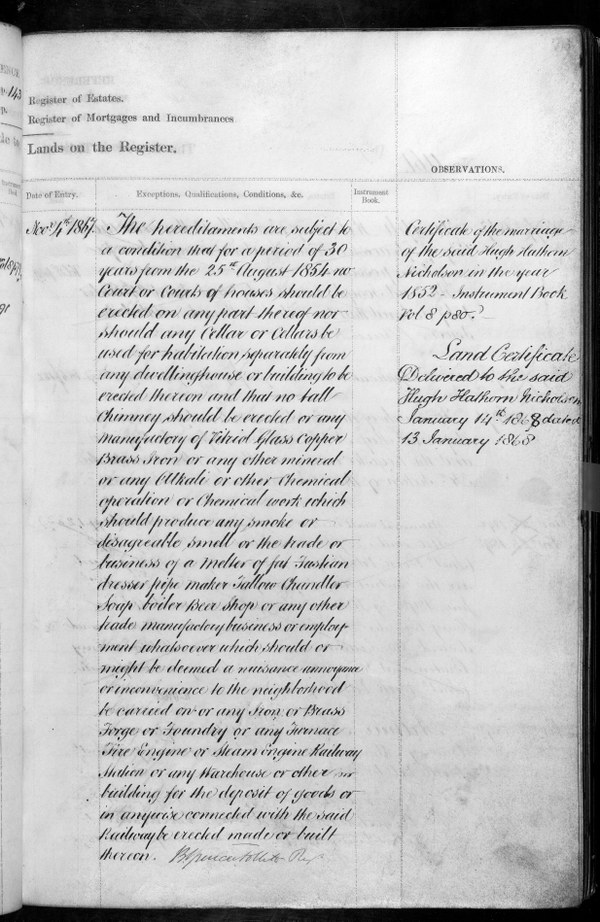 143
Register of Estates.
Register of Mortgages and Incumbrances
Lands on the Register.
OBSERVATIONS.
Date of Entry.
Exceptions, Qualifications, Conditions, &c.
Instrument
Book.
Nov 4th 1867.
The hereditaments are subject to
a condition that for a period of 30
years from the 25th August 1854 no
Court or Courts of houses should be
erected on any part thereof nor
should any Cellar or Cellars be
used for habitation separately from
any dwellinghouse or building to be
erected thereon and that no tall
Chimney should be erected or any
manufactory of Vitriol Glass Copper
Brass Iron or any other mineral
or any Alkali or other Chemical
operation or Chemical work which
should produce any smoke or
disagreable smell or the trade or
business of a Melter of fat Fustian
dresser pipe maker Tallow Chandler
Soap boiler Beer Shop or any other
trade manufactory business or employ-
ment whatsoever which should or
might be deemed a nuisance annoyance
or inconvenience to the neighborhood
be carried on or any Iron or Brass
Forge or Foundry or any Furnace
Fire Engine or Steam Engine Railway
Station or any Warehouse or other
building for the deposit of goods or
in anywise connected with the said
Railway be erected made or built
thereon.
Certificate of the marriage
of the said Hugh Hathorn
Nicholson in the year
1852 - Instrument Book
Vol 8 p 80.
Land Certificate
Delivered to the said
Hugh Hathorn Nicholson
January 14th 1868 dated
13 January 1868